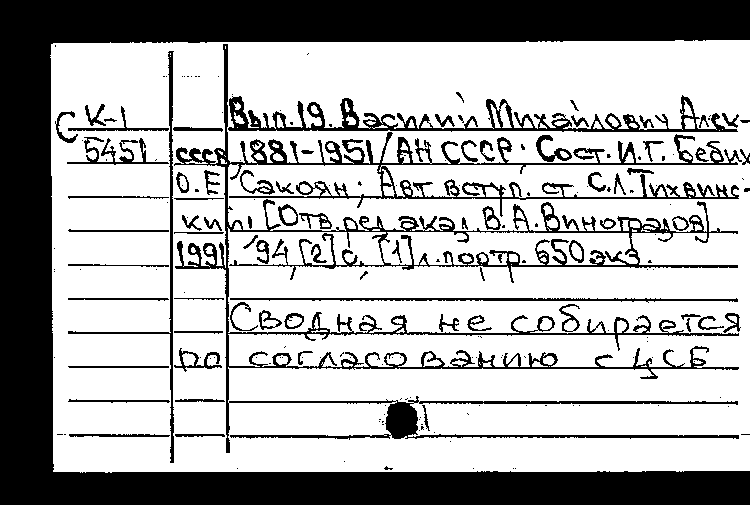 С К-1 Вып.19. Василий Михайлович Алек-
5451 СССР 1881-1951/АН СССР; Сост. И.Г. Бебих
О.Е Сакоян; Авт. вступ. ст. С.Л.Тихвинс-
кий; [Отв.ред. акад. В.А.Виноградов].
1991. 94,[2]с. [1]л.портр. 650экз.
Сводная не собирается
по согласованию с ЦСБ